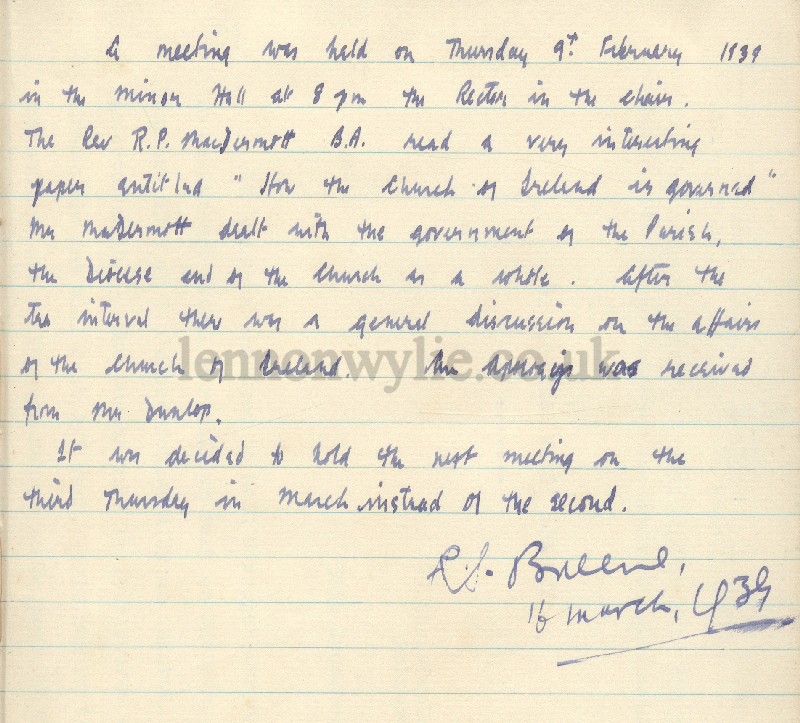 A meeting was held on Thursday 9th February 1939
in the Minor Hall at 8 pm the Rector in the chair.
The Rev R.P. MacDermott B.A. read a very interesting
paper entitled "How the Church of Ireland is governed"
Mr MacDermott dealt with the government of the Parish,
the Diocese and of the Church as a whole. After the
tea interval there was a general discussion on the affairs
of the Church of Ireland. An Apology was received
from Mr Dunlop.
It was decided to hold the next meeting on the
third Thursday in March instead of the second.
16 March, 1939
lennonwylie.co.uk